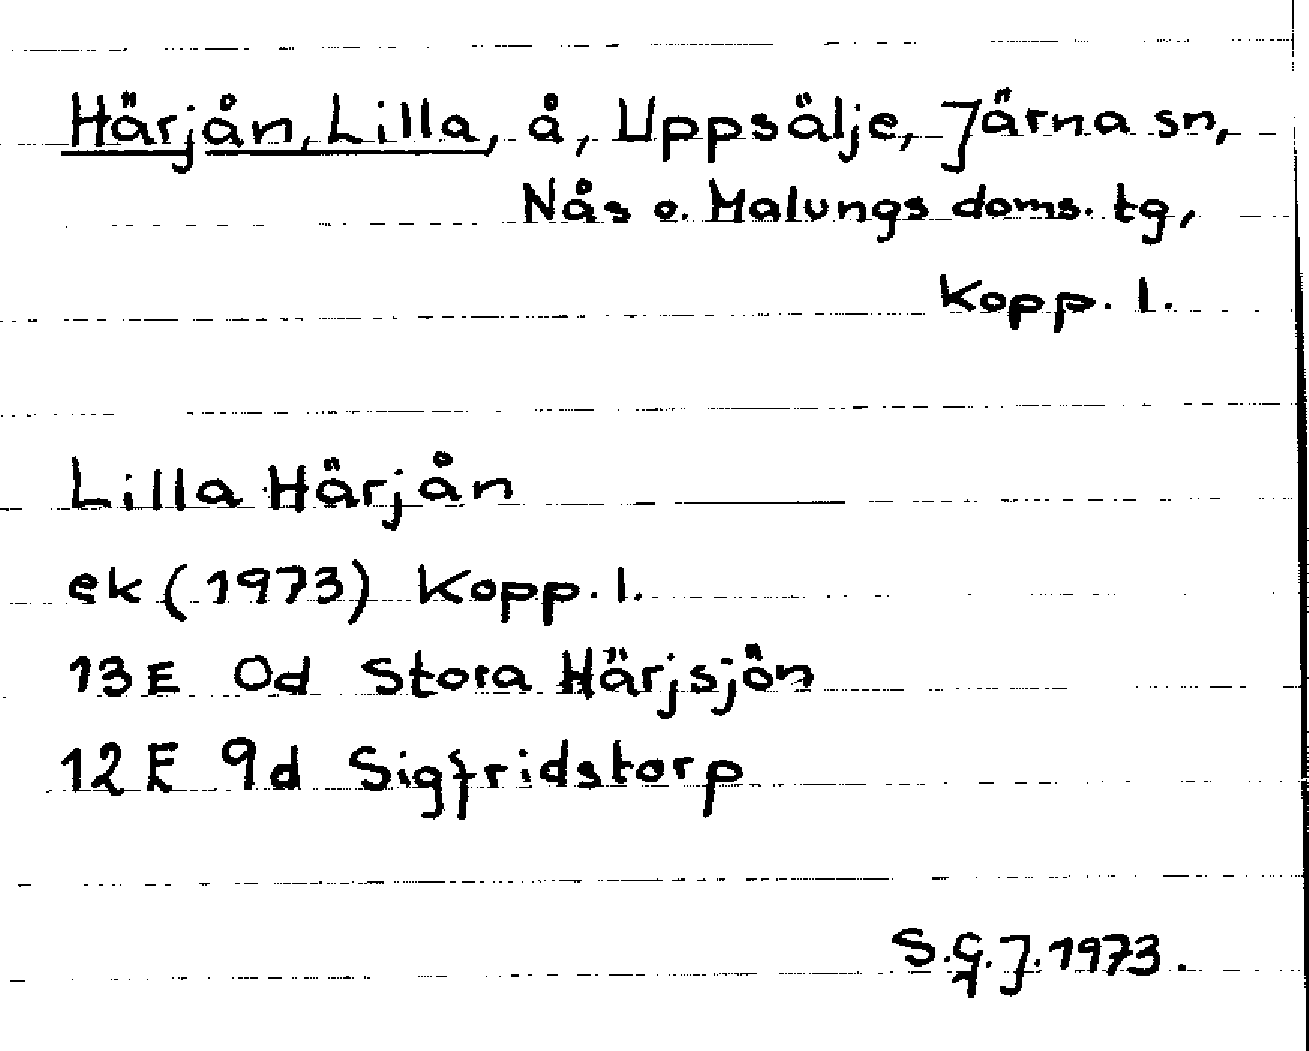 Härjån, Lilla, å, Uppsälje, Järna sn,
Nås o. Malungs doms. tg,
Kopp. l.
Lilla Härjån
ek (1973) Kopp. l.
13E 0d Stora Härjsjön
12E 9d Sigfridstorp
S.G.J. 1973.